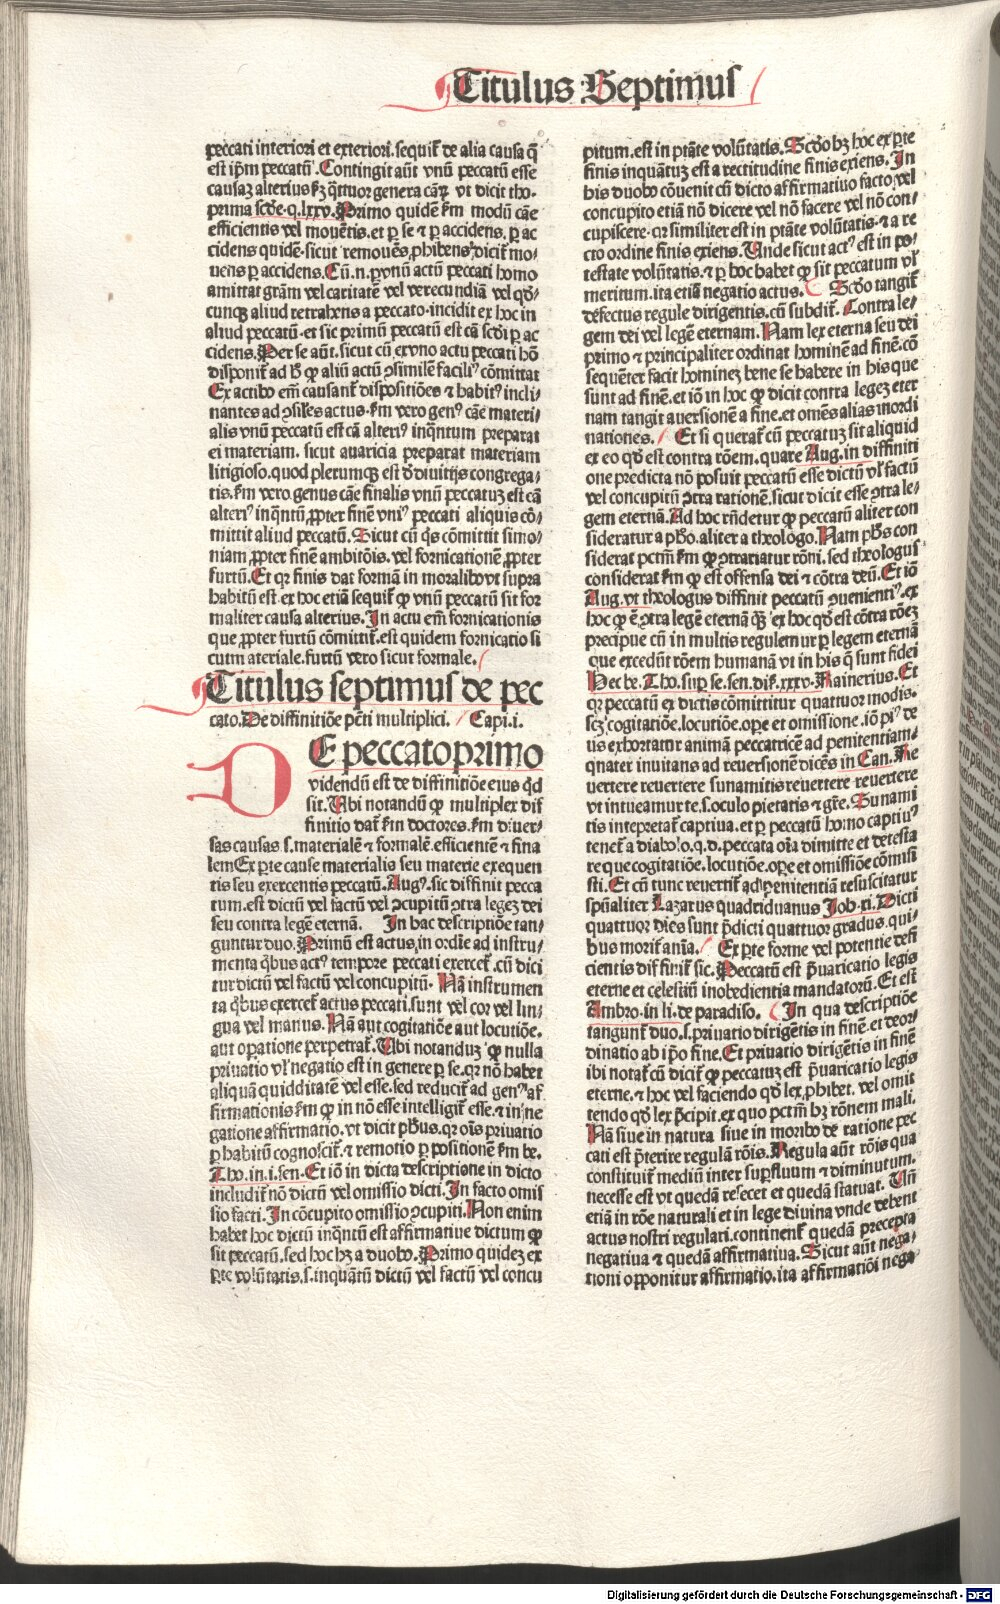 Titulus Septimus
peccati interiori et exteriori. sequiť de alia causa q̃
est ip̃m peccatũ. Contingit aũt vnũ peccatũ esse
causaz alterius ẜz q̃ttuor genera caũz vt dicit tho.
prima scd̃e. q. lxxv. Primo quidẽ ẜm modũ cãe
efficientis vel mouẽtis. et ꝑ se ⁊ ꝑ accidens. ꝑ ac
cidens quidẽ. sicut remouẽs ꝓhibens dicit̃ mo/
uens ꝑ accidens. Cũ. n. ꝑ vnũ actũ peccati homo
amittat grãm vel caritatẽ vel verecundiã vel qđ/
cunqꝫ aliud retrahens a peccato. incidit ex hoc in
aliud peccatũ. et sic primũ peccatũ est cã scđi ꝑ ac
cidens. Per se aũt. sicut cũ ex vno actu peccati hõ
disponit̃ ad h̾ ꝙ aliũ actũ ꝯsimilẽ faciliꝰ cõmittat
Ex actibꝰ em̃ causant̃ dispositiões ⁊ habitꝰ incli/
nantes ad ꝯsiles actus. ẜm vero genꝰ cãe materi/
alis vnũ peccatũ est cã alteriꝰ inq̃ntum preparat
ei materiam. sicut auaricia preparat materiam
litigioso. quod plerumqꝫ est đ diuitijs congrega/
tis. ẜm vero genus cãe finalis vnũ peccatuz est cã
alteriꝰ inq̃ntũ ꝓpter finẽ vniꝰ peccati aliquis cõ/
mittit aliud peccatũ. Sicut cũ q̃s cõmittit simo/
niam ꝓpter finẽ ambitõis. vel fornicationẽ ꝓpter
furtũ. Et qr finis dat formã in moralibꝰ vt supra
habitũ est. ex hoc etiã sequit̃ ꝙ vnũ peccatũ sit for
maliter causa alterius. In actu em̃ fornicationis
que ꝓpter furtũ cõmittit̃. est quidem fornicatio si
cut materiale. furtũ vero sicut formale.
Titulus septimus de pec
cato. De diffinitiõe pc̃ti multiplici. Capi. i.
DE peccato primo
videndũ est de diffinitiõe eius q̃d
sit. Vbi notandũ ꝙ multiplex dif
finitio dat̃ ẜm doctores. ẜm diuer/
sas causas. s. materialẽ ⁊ formalẽ. efficientẽ ⁊ fina
lem Ex ꝑte cause materialis seu materie exequen
tis seu exercentis peccatũ. Augꝰ. sic diffinit pecca
tum. est dictũ vel factũ vel ꝯcupitũ ꝯtra legez dei
seu contra legẽ eternã. In hac descriptiõe tan/
guntur duo. Primũ est actus in ordĩe ad instru/
menta q̃bus actꝰ tempore peccati exercet̃. cũ dici
tur dictũ vel factũ vel concupitũ. Nã instrumen
ta q̃bus exercet̃ actus peccati. sunt vel cor vel lin/
gua vel manus. Nã aut cogitatiõe aut locutiõe.
aut oꝑatione perpetrat̃. Vbi notanduz ꝙ nulla
priuatio vl̃ negatio est in genere ꝑ se. qz nõ habet
aliquã quidditatẽ vel esse. sed reducit̃ ad genꝰ af
firmationis ẜm ꝙ in nõ esse intelligit̃ esse. ⁊ in ne
gatione affirmatio. vt dicit pħus. qr oĩs priuatio
ꝑ habitũ cognoscit̃. ⁊ remotio ꝑ positionẽ ẜm be.
Tho. in. i. sen. Et iõ in dicta descriptione in dicto
includit̃ nõ dictũ vel omissio dicti. In facto omis
sio facti. In cõcupito omissio ꝯcupiti. Non enim
habet hoc dictũ inq̃ntũ est affirmatiue dictum ꝙ
sit peccatũ. sed hoc hz a duobꝰ. Primo quidez ex
ꝑte volũtatis. s. inquãtũ dictũ vel factũ vel concu
pitum. est in ptãte volũtatis. Scđo hz hoc ex ꝑte
finis inquãtuz est a rectitudine finis exiens. In
his duobꝰ cõuenit cũ dicto affirmatiuo facto vel
concupito etiã nõ dicere vel nõ facere vel nõ con/
cupiscere. qr similiter est in ptãte volũtatis. ⁊ a re
cto ordine finis exiens. Unde sicut actꝰ est in po/
testate volũtatis. ⁊ ꝑ hoc habet ꝙ sit peccatum vl̃
meritum. ita etiã negatio actus. Scđo tangit̃
defectus regule dirigentis. cũ subdit̃. Contra le/
gem dei vel legẽ eternam. Nam lex eterna seu dei
primo ⁊ principaliter ordinat hominẽ ad finẽ. cõ
sequẽter facit hominez bene se habere in his que
sunt ad finẽ. et iõ in hoc ꝙ dicit contra legez eter
nam tangit auersionẽ a fine. et omẽs alias inordi
nationes. Et si querat̃ cũ peccatuz sit aliquid
ex eo qđ est contra rõem. quare Aug. in diffiniti
one predicta nõ posuit peccatũ esse dictũ vl̃ factũ
vel concupitũ ꝯtra rationẽ. sicut dicit esse ꝯtra le/
gem eternã. Ad hoc rñdetur ꝙ peccatũ aliter con
sideratur a pħo. aliter a theologo. Nam pħs con
siderat pctm̃ ẜm ꝙ ꝯtrariatur rõni. sed theologus
considerat ẜm ꝙ est offensa dei ⁊ cõtra deũ. Et iõ
Aug. vt theologus diffinit peccatũ ꝯuenientiꝰ. ex
hoc ꝙ ẽ ꝯtra legẽ eternã q̃ꝫ ex hoc qđ est cõtra rõez
precipue cũ in multis regulemur ꝑ legem eternã
que excedũt rõem humanã vt in his q̃ sunt fidei
Hec be. Tho. suꝑ se. sen. dis. xxxv. Rainerius. Et
qr peccatũ ex dictis cõmittitur quattuor modis.
scz cogitatiõe. locutiõe. oꝑe et omissione. iõ piꝰ de
us exhortatur animã peccatricẽ ad penitentiam/
q̃nater inuitans ad reuersionẽ dicẽs in Can. Re
uertere reuertere sunamitis reuertere reuertere
vt intueamur te. s. oculo pietatis ⁊ grẽ. Sunami
tis intepretat̃ captiua. et ꝑ peccatũ homo captiuꝰ
tenet̃ a diabolo. q. d. peccata oĩa dimitte et detesta
re que cogitatiõe. locutiõe. oꝑe et omissiõe cõmisi
sti. Et cũ tunc reuertit̃ ad penitentiã resuscitatur
spũaliter Lazarus quadriduanus Joh. xi. Dicti
quattuor dies sunt p̃dicti quattuor gradus. qui/
bus morit̃ anĩa. Ex ꝑte forme vel potentie defi
cientis diffinit̃ sic. Peccatũ est p̃uaricatio legis
eterne et celestiũ inobedientia mandatorũ. Et est
Ambro. in li. de paradiso. In qua descriptiõe
tangunt̃ duo. s. priuatio dirigẽtis in finẽ. et deor/
dinatio ab ip̃o fine. Et priuatio dirigẽtis in finẽ
ibi notat̃ cũ dicit̃ ꝙ peccatuz est p̃uaricatio legis
eterne. ⁊ hoc vel faciendo qđ lex ꝓhibet. vel omit
tendo qđ lex p̃cipit. ex quo pctm̃ hz rõnem mali.
Nã siue in natura siue in moribꝰ de ratione pec
cati est p̃terire regulã rõis. Regula aũt rõis qua
constituit̃ mediũ inter suꝑfluum ⁊ diminutum.
necesse est vt quedã resecet et quedã statuat. Uñ
etiã in rõe naturali et in lege diuina vnde debent
actus nostri regulari. continent̃ quedã precepta
negatiua ⁊ quedã affirmatiua. Sicut aũt nega/
tioni opponitur affirmatio. ita affirmatiõi nega
Digitalisierung gefördert durch die Deutsche Forschungsgemeinschaft - DFG